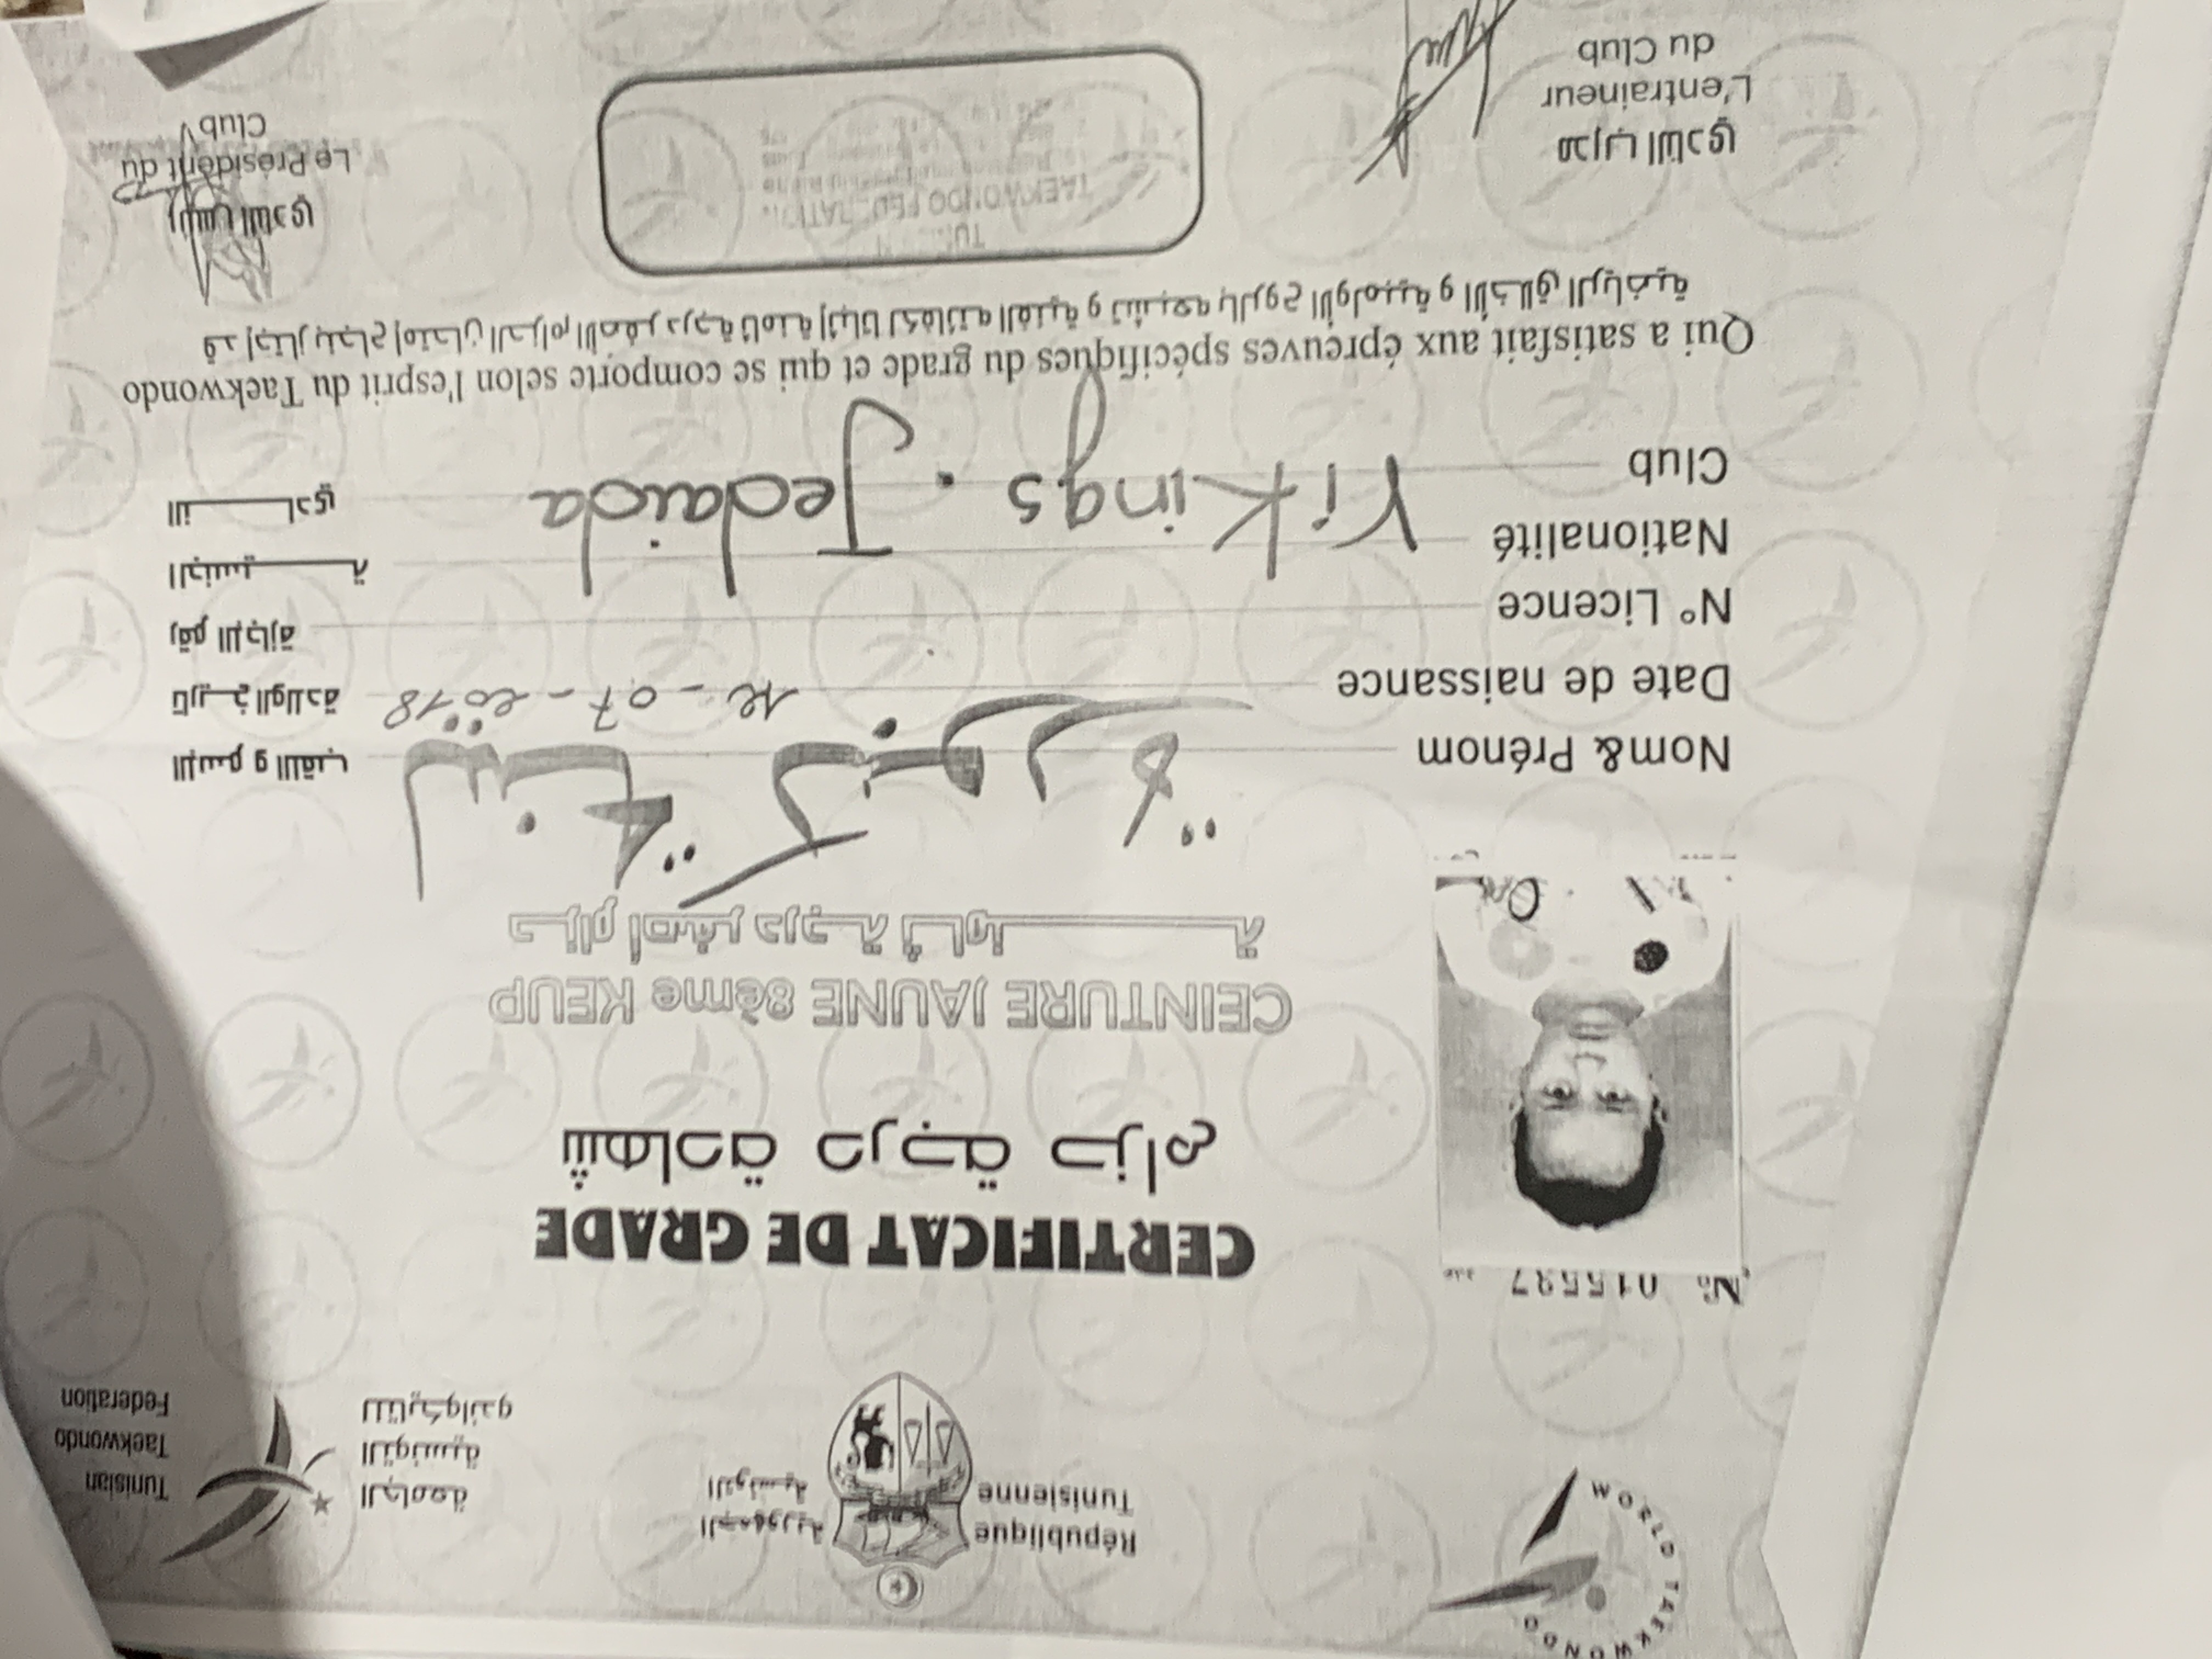 WORLD TAEKWONDO
République
Tunisienne
الجمهورية
التونسية
الجامعة
التونسية
للتايكواندو
Tunisian
Taekwondo
Federation
CERTIFICAT DE GRADE
شهادة درجة حزام
CEINTURE JAUNE 8ème KEUP
حزام أصفر درجة ثامنة
Nom& Prénom
الإسم و اللقب
Date de naissance 12-07-2018 تاريخ الولادة
N° Licence رقم الإجازة
Nationalité الجنسية
Club Vikings . Jedaida النادي
Qui a satisfait aux épreuves spécifiques du grade et qui se comporte selon l'esprit du Taekwondo
قد إجتاز بنجاح إمتحان الحزام الأصفر درجة ثامنة إثباتا لكفائته الفنية و تشبعه بالروح الأولمبية و الأخلاق الرياضية
مدرب النادي
L'entraineur
du Club
TAEKWONDO FEDERATION
رئيس النادي
Le Président du
Club